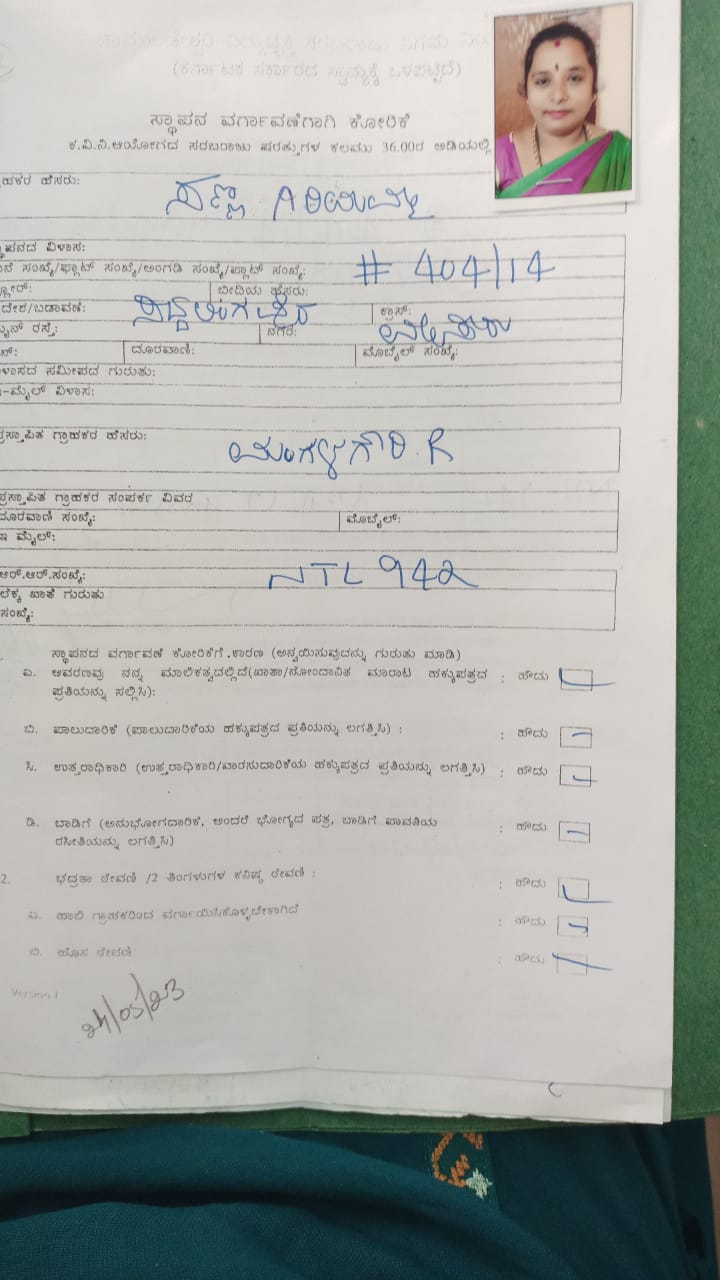 (ಕರ್ನಾಟಕ ಸರ್ಕಾರದ ಸ್ವಾಮ್ಯಕ್ಕೆ ಒಳಪಟ್ಟಿದೆ)
ಸ್ಥಾಪನ ವರ್ಗಾವಣೆಗಾಗಿ ಕೋರಿಕೆ
ಕ.ವಿ.ನಿ.ಆಯೋಗದ ಸರಬರಾಜು ಷರತ್ತುಗಳ ಕಲಮು 36.00ರ ಅಡಿಯಲ್ಲಿ
ಹಕರ ಹೆಸರು:
ಸಣ್ಣ
ಸ್ಥಾಪನದ ವಿಳಾಸ:
ನೆ ಸಂಖ್ಯೆ/ಫ್ಲಾಟ್ ಸಂಖ್ಯೆ/ಅಂಗಡಿ ಸಂಖ್ಯೆ/ಪ್ಲಾಟ್ ಸಂಖ್ಯೆ: # 404/14
ಫ್ಲೋರ್: ಬೀದಿಯ ಹೆಸರು:
ದೇಶ/ಬಡಾವಣೆ: ಸಿದ್ದಲಿಂಗಪುರ ಕ್ರಾಸ್:
ಮೈನ್ ರಸ್ತೆ: ನಗರ: ಮೈಸೂರು
ದೂರವಾಣಿ: ಮೊಬೈಲ್ ಸಂಖ್ಯೆ:
ಳಾಸದ ಸಮೀಪದ ಗುರುತು:
ಇ-ಮೈಲ್ ವಿಳಾಸ:
ಪ್ರಸ್ತಾಪಿತ ಗ್ರಾಹಕರ ಹೆಸರು: ಮಂಗಳಗೌರಿ. R
ಪ್ರಸ್ತಾಪಿತ ಗ್ರಾಹಕರ ಸಂಪರ್ಕ ವಿವರ
ದೂರವಾಣಿ ಸಂಖ್ಯೆ: ಮೊಬೈಲ್:
ಇ ಮೈಲ್:
ಆರ್.ಆರ್.ಸಂಖ್ಯೆ: NTL 942
ಲೆಕ್ಕ ಖಾತೆ ಗುರುತು
ಸಂಖ್ಯೆ:
ಸ್ಥಾಪನದ ವರ್ಗಾವಣೆ ಕೋರಿಕೆಗೆ ಕಾರಣ (ಅನ್ವಯಿಸುವುದನ್ನು ಗುರುತು ಮಾಡಿ)
ಎ. ಆವರಣವು ನನ್ನ ಮಾಲಿಕತ್ವದಲ್ಲಿದೆ(ಖಾತಾ/ನೋಂದಾನಿತ ಮಾರಾಟ ಹಕ್ಕುಪತ್ರದ : ಹೌದು
ಪ್ರತಿಯನ್ನು ಸಲ್ಲಿಸಿ):
ಬಿ. ಪಾಲುದಾರಿಕೆ (ಪಾಲುದಾರಿಕೆಯ ಹಕ್ಕುಪತ್ರದ ಪ್ರತಿಯನ್ನು ಲಗತ್ತಿಸಿ) : : ಹೌದು
ಸಿ. ಉತ್ತರಾಧಿಕಾರಿ (ಉತ್ತರಾಧಿಕಾರಿ/ವಾರಸುದಾರಿಕೆಯ ಹಕ್ಕುಪತ್ರದ ಪ್ರತಿಯನ್ನು ಲಗತ್ತಿಸಿ) : ಹೌದು
ಡಿ. ಬಾಡಿಗೆ (ಅನುಭೋಗದಾರಿಕೆ, ಅಂದರೆ ಭೋಗ್ಯದ ಪತ್ರ, ಬಾಡಿಗೆ ಪಾವತಿಯ : ಹೌದು
ರಸೀತಿಯನ್ನು ಲಗತ್ತಿಸಿ)
2. ಭದ್ರತಾ ಠೇವಣಿ /2 ತಿಂಗಳುಗಳ ಕನಿಷ್ಠ ಠೇವಣಿ : : ಹೌದು
ಎ. ಹಾಲಿ ಗ್ರಾಹಕರಿಂದ ವರ್ಗಾಯಿಸಿಕೊಳ್ಳಬೇಕಾಗಿದೆ : ಹೌದು
ಬಿ. ಹೊಸ ಠೇವಣಿ : ಹೌದು
Version 1
24/05/23